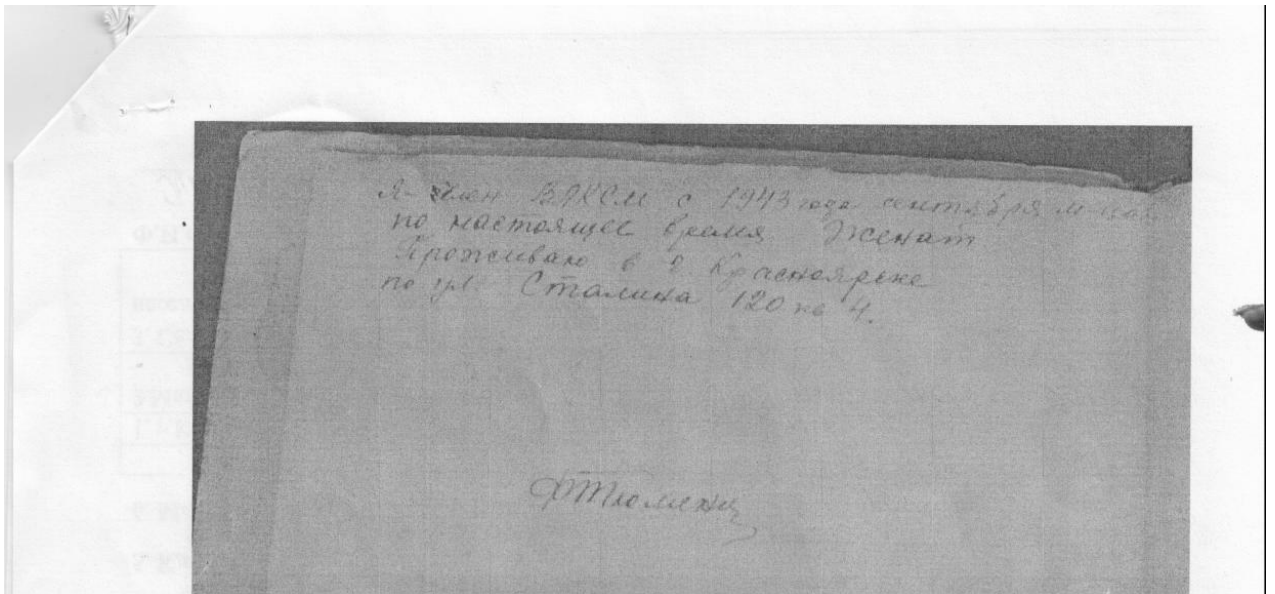 Я- член ВЛКСМ с 1943 года сентября м-ца
по настоящее время Женат
Проживаю в г. Красноярске
по ул. Сталина 120 кв 4.